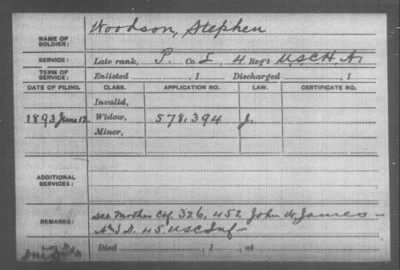 NAME OF SOLDIER: Woodson, Stephen
SERVICE: Late rank, P. Co. L, 4 Reg't U.S.C.H.A.
TERM OF SERVICE: Enlisted , 1 Discharged , 1
DATE OF FILING. CLASS. APPLICATION NO. LAW. CERTIFICATE NO.
Invalid,
1893 June 12 Widow, 578,394 J.
Minor,
ADDITIONAL SERVICES:
REMARKS: see Mother Ctf. 326,452 John W. James
45 U.S.C. Inf
Died , 1 , at